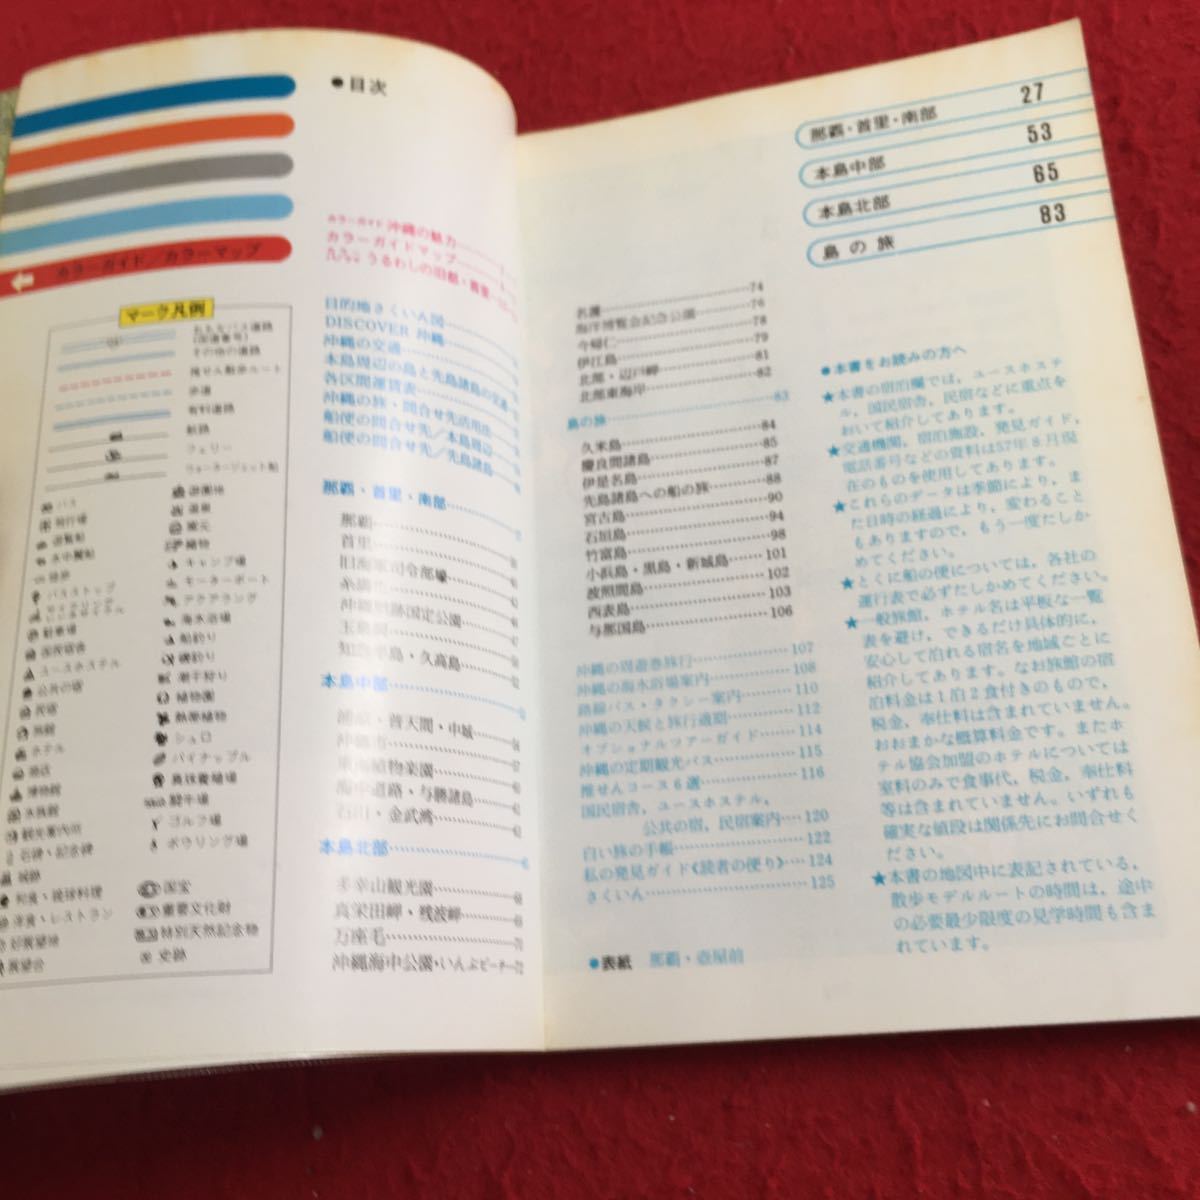 ●目次
カラーガイド/カラーマップ
マーク凡例
おもなバス道路
(国道番号)
その他の道路
推せん散歩ルート
歩道
有料道路
航路
フェリー
ウォータージェット船
バス
飛行場
遊覧船
水中翼船
バスストップ
駐車場
国民宿舎
ユースホステル
公共の宿
民宿
旅館
ホテル
商店
博物館
水族館
観光案内所
石碑・記念碑
城跡
和食・琉球料理
洋食・レストラン
好展望地
展望台
遊園地
温泉
窯元
織物
キャンプ場
モーターボート
アクアラング
海水浴場
船釣り
磯釣り
潮干狩り
植物園
熱帯植物
シュロ
パイナップル
真珠養殖場
闘牛場
ゴルフ場
ボウリング場
国宝
重要文化財
特別天然記念物
史跡
カラーガイド 沖縄の魅力
カラーガイドマップ
うるわしの旧都・首里
目的地さくいん図
DISCOVER 沖縄
沖縄の交通
本島周辺の島と先島諸島の交通
各区間運賃表
沖縄の旅・問合せ先活用法
船便の問合せ先/本島周辺
船便の問合せ先/先島諸島
那覇・首里・南部
那覇
首里
旧海軍司令部壕
糸満市
沖縄戦跡国定公園
玉泉洞
知念半島・久高島
本島中部
浦添・普天間・中城
沖縄市
東南植物楽園
海中道路・与勝諸島
石川・金武湾
本島北部
多幸山観光園
真栄田岬・残波岬
万座毛
沖縄海中公園・いんぶビーチ
那覇・首里・南部 27
本島中部 53
本島北部 65
島の旅 83
名護 74
海洋博覧会記念公園 76
今帰仁 78
伊江島 79
北部・辺戸岬 81
北部東海岸 82
島の旅 83
久米島 84
慶良間諸島 85
伊是名島 87
先島諸島への船の旅 88
宮古島 90
石垣島 94
竹富島 98
小浜島・黒島・新城島 101
波照間島 102
西表島 103
与那国島 106
沖縄の周遊券旅行 107
沖縄の海水浴場案内 108
路線バス・タクシー案内 110
沖縄の天候と旅行適期 112
オプショナルツアーガイド 114
沖縄の定期観光バス 115
推せんコース6選 116
国民宿舎、ユースホステル、
公共の宿、民宿案内 120
白い旅の手帳 122
私の発見ガイド《読者の便り》 124
さくいん 125
●表紙 那覇・壺屋前
●本書をお読みの方へ
★本書の宿泊欄では、ユースホステ
ル、国民宿舎、民宿などに重点を
おいて紹介してあります。
★交通機関、宿泊施設、発見ガイド、
電話番号などの資料は57年8月現
在のものを使用してあります。
★これらのデータは季節により、ま
た日時の経過により、変わること
もありますので、もう一度たしか
めてください。
★とくに船の便については、各社の
運行表で必ずたしかめてください。
★一般旅館、ホテル名は平板な一覧
表を避け、できるだけ具体的に、
安心して泊れる宿名を地域ごとに
紹介してあります。なお旅館の宿
泊料金は1泊2食付きのもので、
税金、奉仕料は含まれていません。
おおまかな概算料金です。またホ
テル協会加盟のホテルについては
室料のみで食事代、税金、奉仕料
等は含まれていません。いずれも
確実な値段は関係先にお問合せく
ださい。
★本書の地図中に表記されている、
散歩モデルルートの時間は、途中
の必要最少限度の見学時間も含ま
れています。